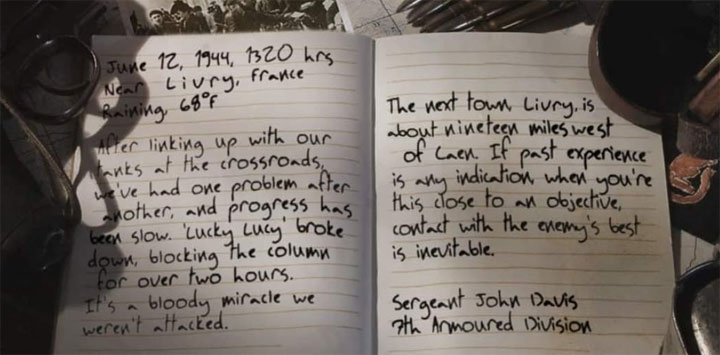 June 12, 1944, 1320 hrs
Near Livry, France
Raining, 68°F
After linking up with our
tanks at the crossroads,
we've had one problem after
another, and progress has
been slow. 'Lucky Lucy' broke
down, blocking the column
for over two hours.
It's a bloody miracle we
weren't attacked.
The next town, Livry, is
about nineteen miles west
of Caen. If past experience
is any indication, when you're
this close to an objective,
contact with the enemy's best
is inevitable.
Sergeant John Davis
7th Armoured Division